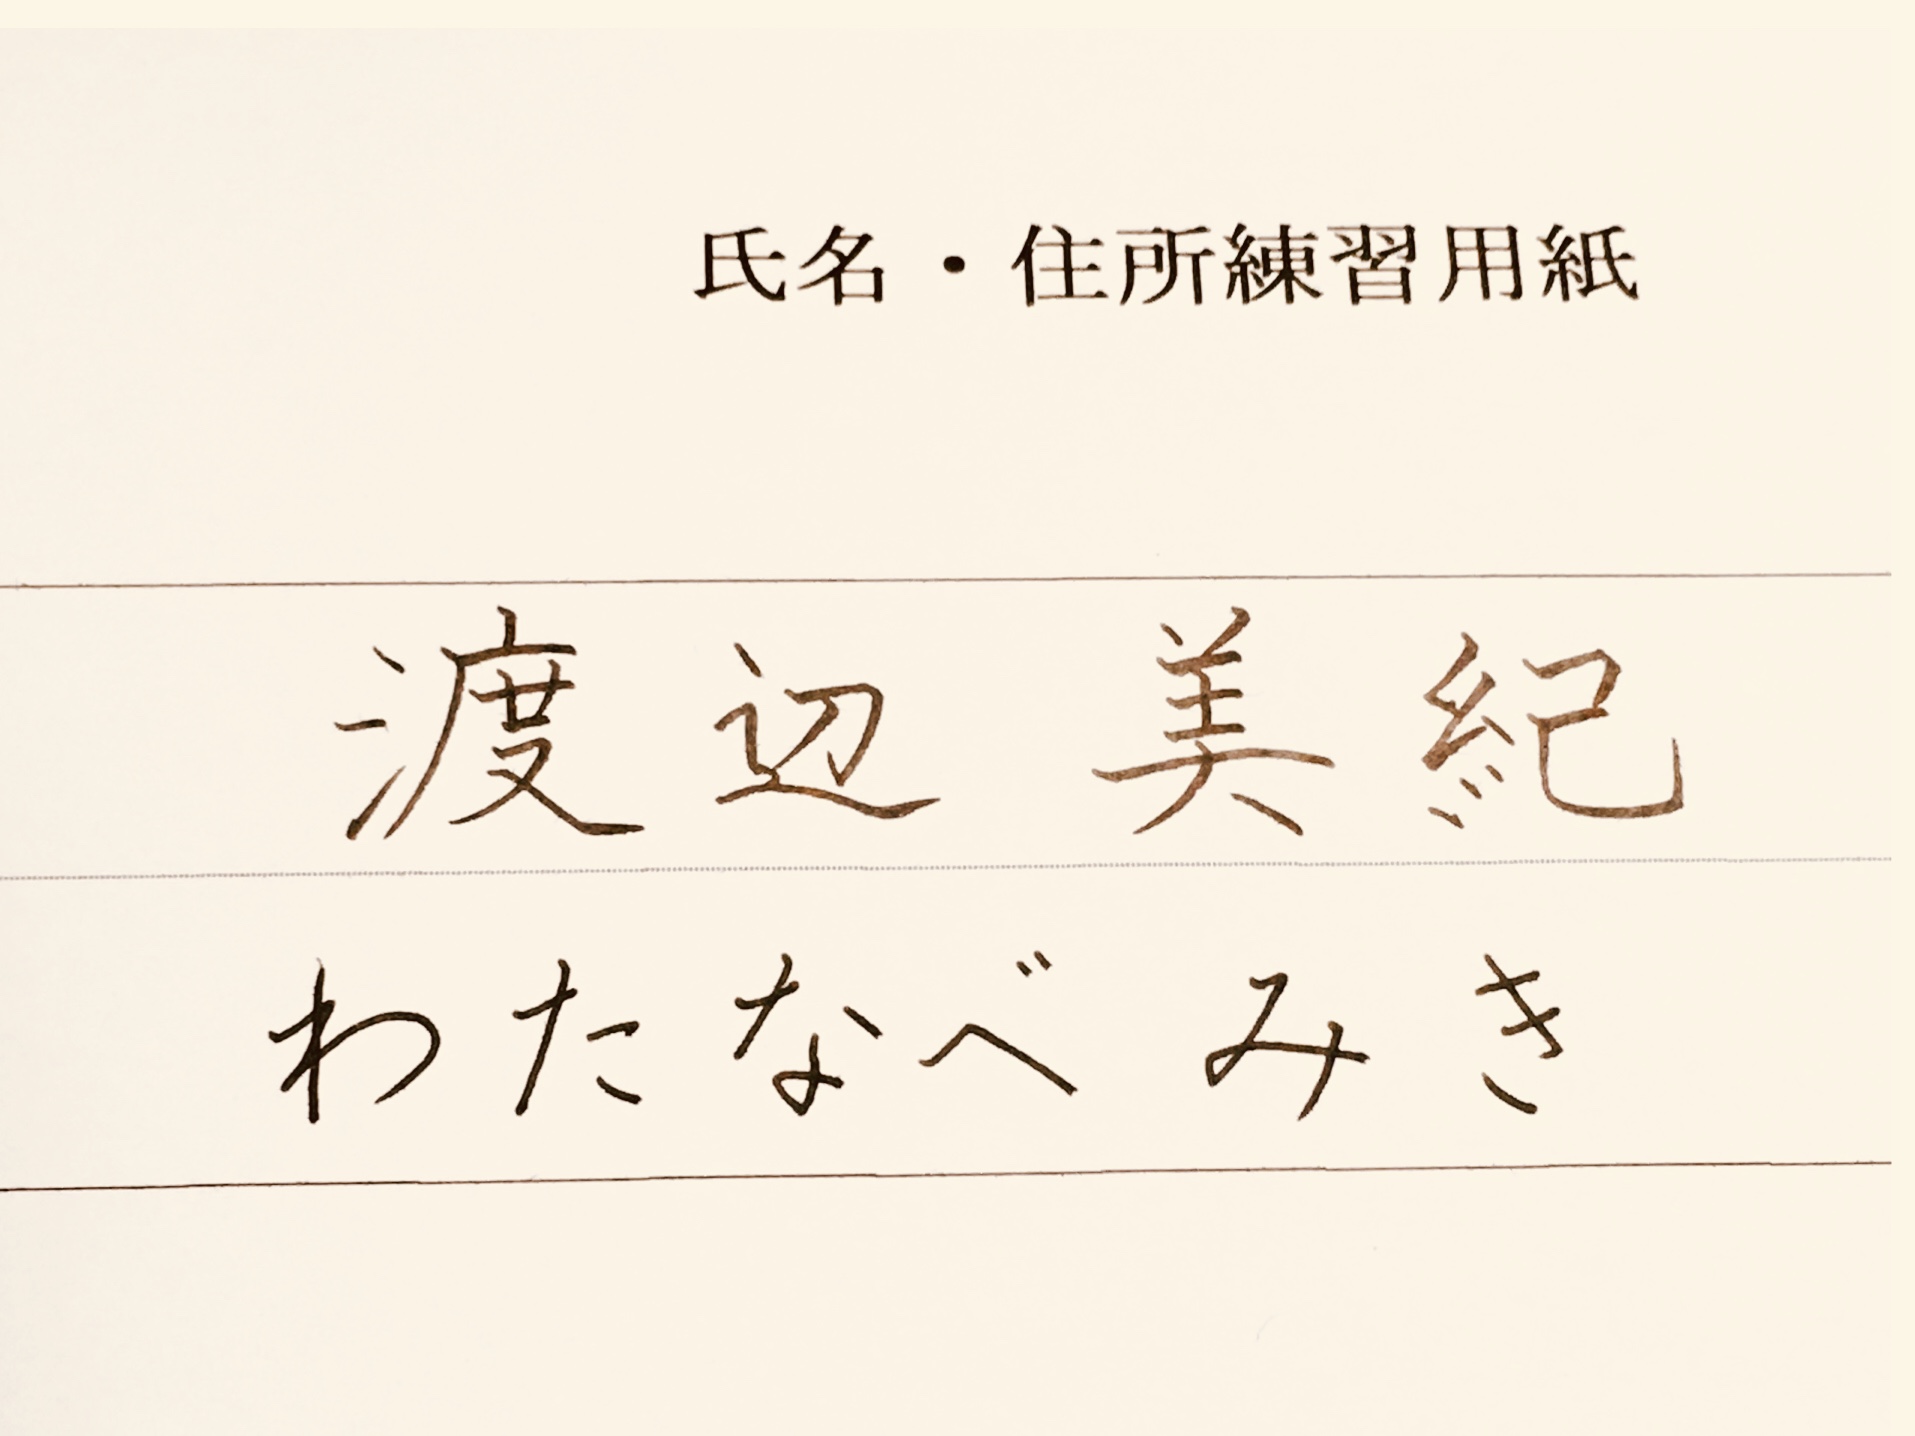 氏名・住所練習用紙
渡辺 美紀
わたなべ みき